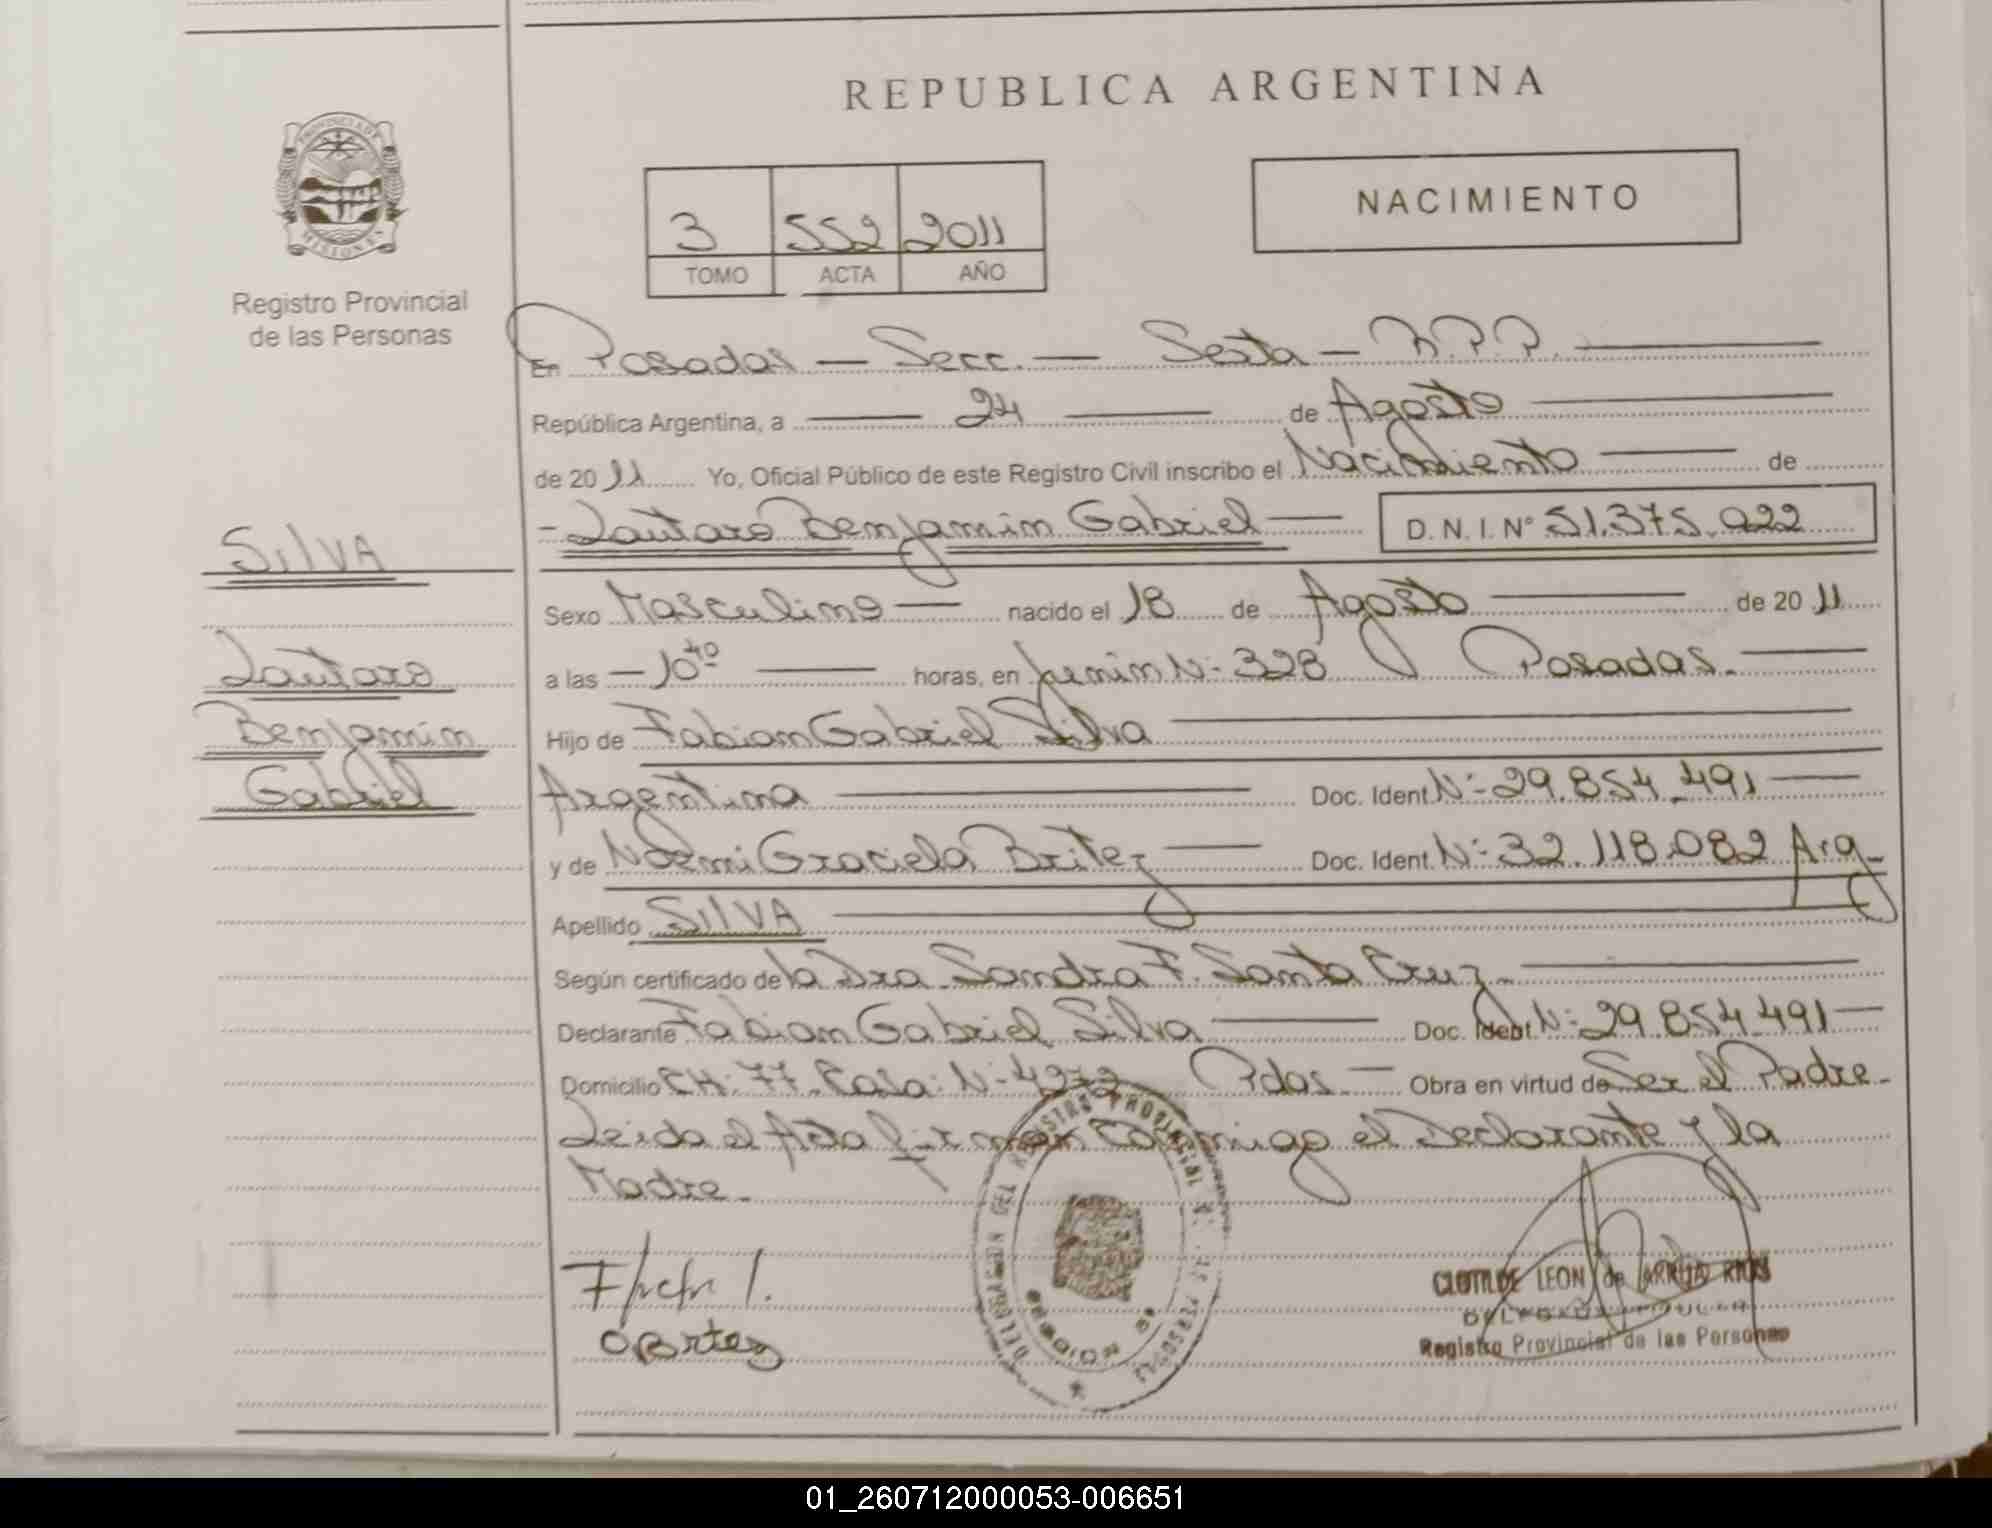 REPUBLICA ARGENTINA
PROVINCIA DE MISIONES
Registro Provincial
de las Personas
3 552 2011
TOMO ACTA AÑO
NACIMIENTO
En Posadas — Secc. — Sexta — R.P.P.
República Argentina, a — 24 — de Agosto
de 2011 Yo, Oficial Público de este Registro Civil inscribo el Nacimiento — de
- Lautaro Benjamin Gabriel — D.N.I. Nº 51.375.922
SILVA
Lautaro
Benjamin
Gabriel
Sexo Masculino — nacido el 18 de Agosto — de 2011
a las — 10 40 — horas, en Junin N: 328 Posadas. —
Hijo de Fabian Gabriel Silva
Argentina — Doc. Ident. N: 29.854.491 —
y de Noemi Graciela Britez — Doc. Ident. N: 32.118.082 Arg
Apellido SILVA
Según certificado de la Dra Sandra F. Santa Cruz —
Declarante Fabian Gabriel Silva — Doc. Ident. N: 29.854.491 —
Domicilio CH: 77. Casa: N: Pdas. — Obra en virtud de Ser el Padre.
Leida el Acta firman conmigo el Declarante y la
Madre.
Britez
CLOTILDE LEON de ARRUA RIOS
DELEGADA TITULAR
Registro Provincial de las Personas
01_260712000053-006651